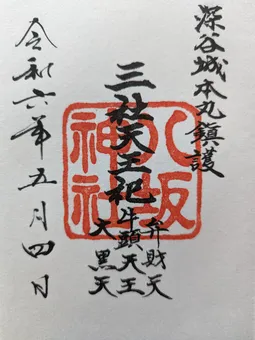 深谷城本丸鎮護
三社天王祀
弁財天
牛頭天王
大黒天
八坂神社
令和六年五月四日